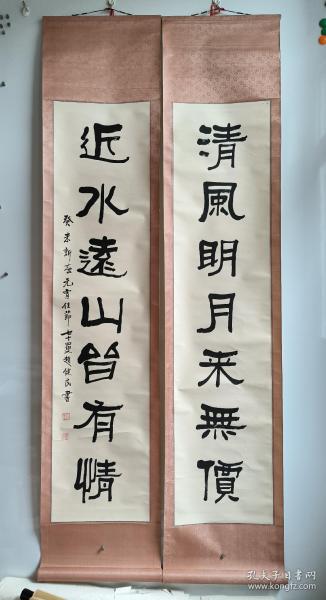 清風明月来無價
近水遠山皆有情
癸未新春元宵佳節 趙健民書
孔夫子旧书网
www.kongfz.com